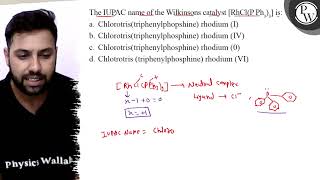 The IUPAC name of the Wilkinsons catalyst [RhCl(PPh₃)₃] is:
a. Chlorotris(triphenylphosphine) rhodium (I)
b. Chlorotris(triphenylphosphine) rhodium (IV)
c. Chlorotris(triphenylphosphine) rhodium (0)
d. Chlorotrtis (triphenylphosphine) rhodium (VI)
[RhCl(PPh₃)₃] → Neutral complex
x-1+0=0
Ligand → Cl⁻
x = +1
IUPAC Name = Chloro
Physics Wallah
PW